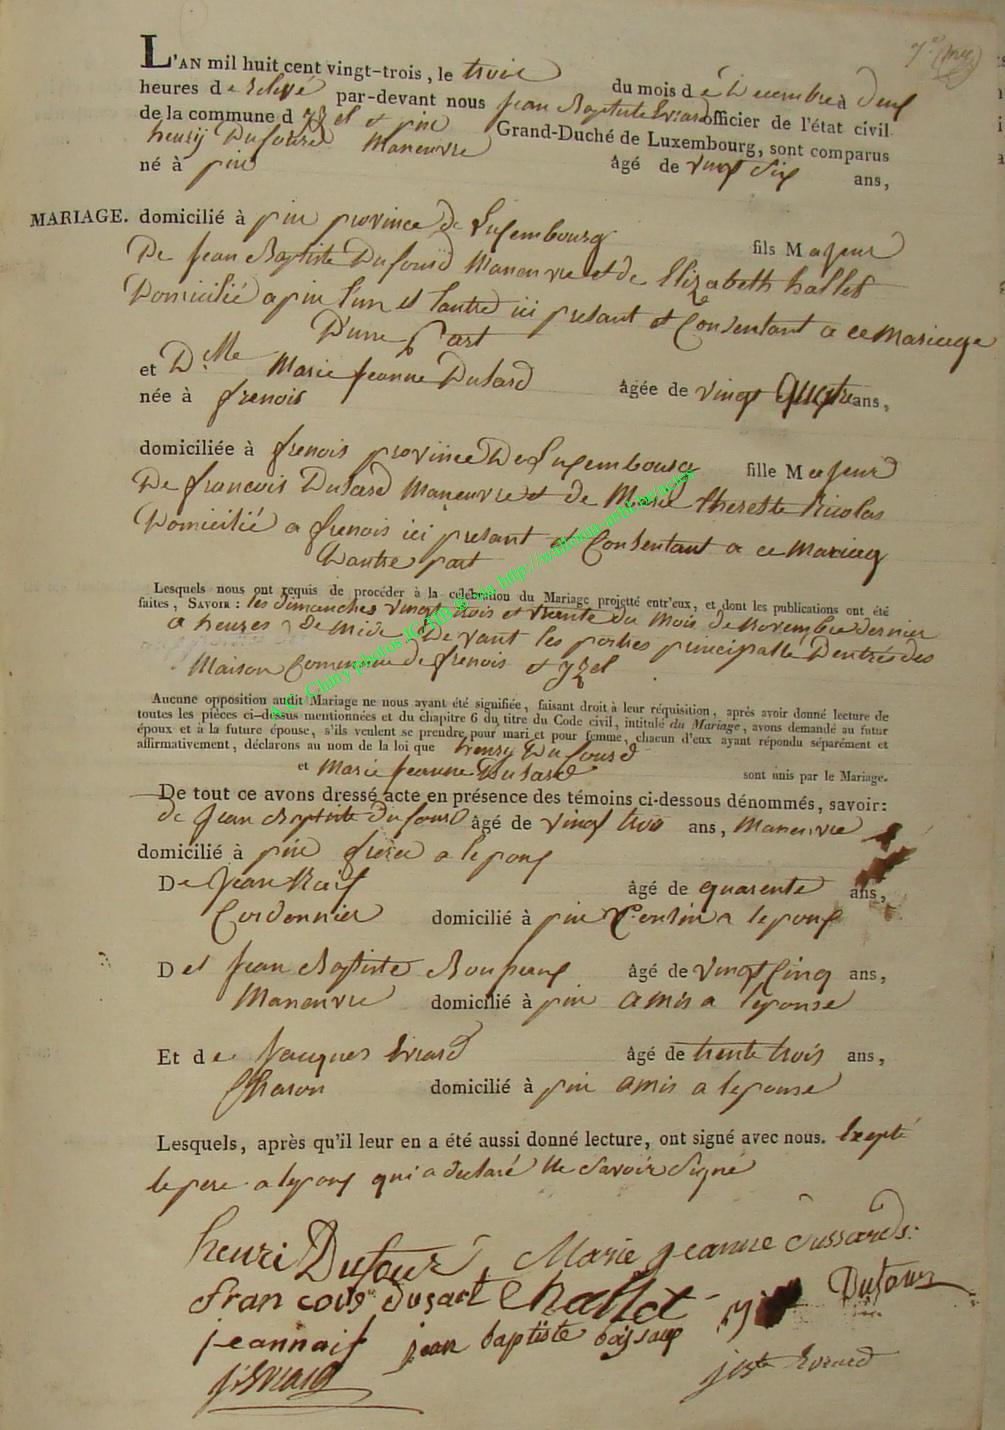 7e
L'AN mil huit cent vingt-trois, le trois du mois de Decembre à deux
heures de relevé par-devant nous jean Baptiste Evrard officier de l'état civil
de la commune d'yzel et pin Grand-Duché de Luxembourg, sont comparus
henry Dufourd Maneuvre
né à pin âgé de vingt six ans,
MARIAGE. domicilié à pin province de Luxembourg fils Majeur
De jean Baptiste Dufourd Maneuvre et de Elizabeth hallet
Domicilié a pin l'un et l'autre ici présant et Consentant a ce Mariage
D'une Part
et D.lle Marie jeanne Dusard âgée de vingt quatre ans,
née à frenois
domiciliée à frenois province De Luxembourg fille Majeur
De francois Dusard Maneuvre et de Marie therette Nicolas
Domicilié a frenois ici présant et Consentant a ce Mariag
D'autre part
Lesquels nous ont requis de procéder à la célébration du Mariage projetté entr'eux, et dont les publications ont été
faites, SAVOIR : les dimanches vingt trois et trente du Mois de Novembre dernier
a heures De Midi Devant les portes principalle Dentrés des
Maison Commune de frenois et yzel
Aucune opposition audit Mariage ne nous ayant été signifiée, faisant droit à leur réquisition, après avoir donné lecture de
toutes les pièces ci-dessus mentionnées et du chapitre 6 du titre du Code civil, intitulé du Mariage, avons demandé au futur
époux et à la future épouse, s'ils veulent se prendre pour mari et pour femme, chacun d'eux ayant répondu séparément et
affirmativement, déclarons au nom de la loi que henry Dufourd
et Marie jeanne Dusard sont unis par le Mariage.
De tout ce avons dressé acte en présence des témoins ci-dessous dénommés, savoir:
de jean Baptiste Dufourd âgé de vingt trois ans, Maneuvre
domicilié à pin frere a lepoux
De jean Naif âgé de quarente ans,
Cordonnier domicilié à pin Cousin a lepoux
Det jean Baptiste âgé de vingt Cinq ans,
Maneuvre domicilié à pin amis a leponse
Et de jacques Evrard âgé de trente trois ans,
Charon domicilié à pin amis a leponse
Lesquels, après qu'il leur en a été aussi donné lecture, ont signé avec nous. Exepté
le pere a lepoux qui a declaré Ne Savoir Signé
henri Dufour, Marie jeanne dussards
francois dusart E hallet Dufour
jeannaif jean baptiste
j Evrard jbte Evrard
A.E. Chiny photos JC HB © via http://wallonia-asbl.be/actes